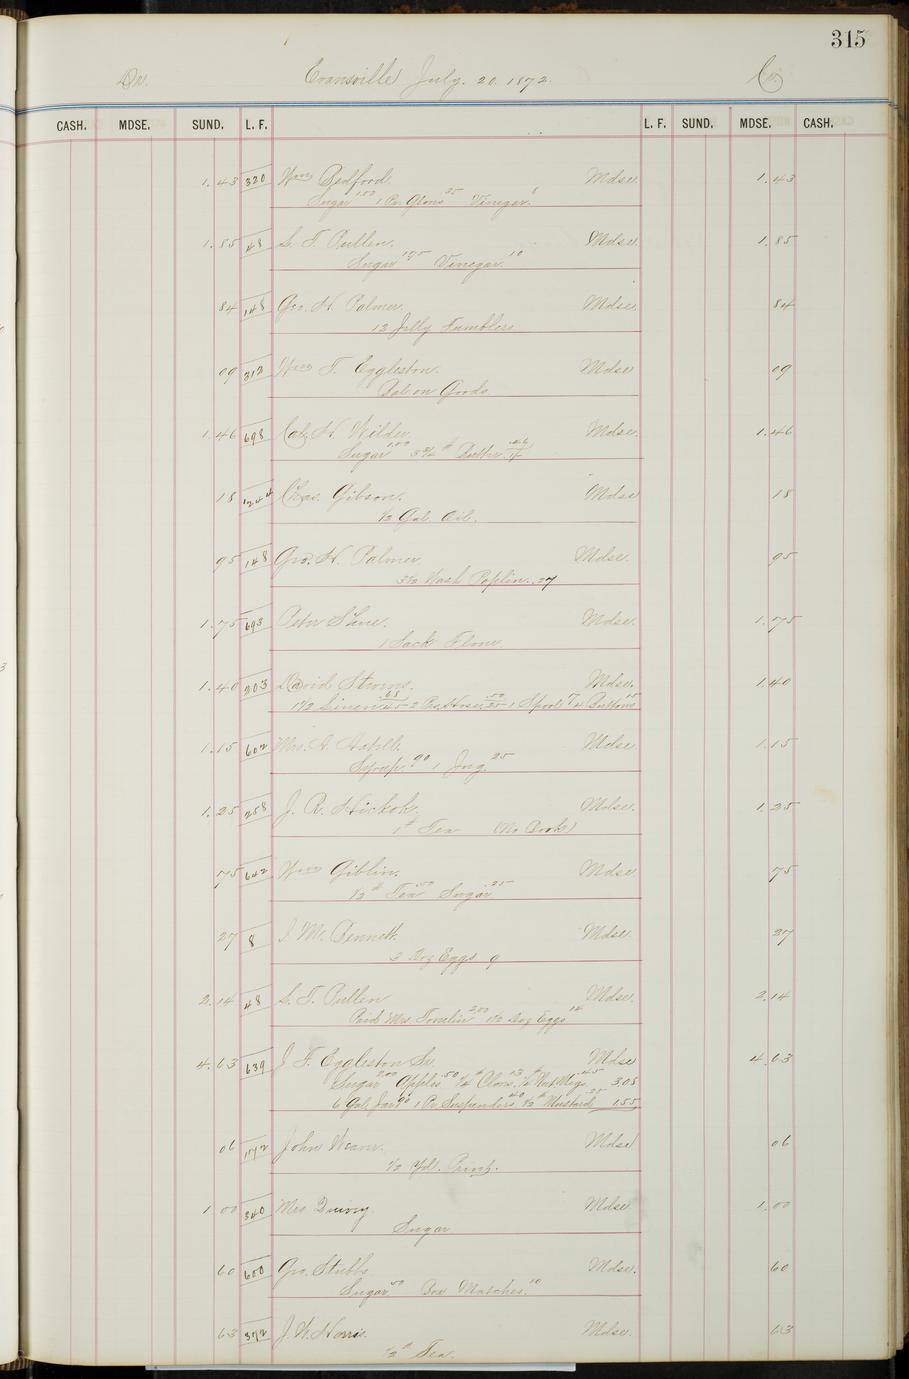 315
Dr. Evansville July. 20. 1872. Cr.
CASH. MDSE. SUND. L. F. L. F. SUND. MDSE. CASH.
1.43 320 Wm Bedford. Mdse. 1.43
Sugar 1.00 1 Pr. Gloves 35 Vinegar. 8
1.85 48 S. T. Pullen. Mdse. 1.85
Sugar 1.75 Vinegar. 10
84 148 Geo. H. Palmer. Mdse. 84
12 Jelly Tumblers
09 312 Wm T. Eggleston. Mdse 09
Bal on Goods.
1.46 698 Cal. H. Wilder Mdse. 1.46
Sugar 1.00 3 3/4 # Butter
18 Chas. Gibson. Mdse 18
1/2 Gal. Oil.
95 148 Geo. H. Palmer Mdse. 95
3 1/2 Wash Poplin. 27
1.75 693 Peter Shine. Mdse. 1.75
1 Sack Flour.
1.40 203 David Stevens. Mdse. 1.40
1 1/2 Linen .68 45 - 2 Prs. Hose. .50 25 - 1 Spool 7 Buttons 15
1.15 602 Mrs. A. Mdse 1.15
Syrup. 90 1 Jug. 25
1.25 258 J. R. Hickok. Mdse. 1.25
1 # Tea (No Book)
75 642 Wm Giblin. Mdse 75
1/2 # Tea 50 Sugar 25
27 8 J. M. Bennett. Mdse. 27
3 Doz Eggs 9
2.14 48 S. T. Pullen Mdse. 2.14
Paid Mrs. Tomlin 2.00 1 1/2 Doz Eggs 14
4.63 639 J. T. Eggleston Sr. Mdse 4.63
Sugar 2.00 Apples .50 1/4 # Cloves. 13 1/4 # Nut Megs. .45 3.08
6 Gal Jar 90 1 Pr Suspenders 40 1/2 # Mustard .25 1.55
06 172 John Weaver. Mdse 06
1/2 Yd.
1.00 340 Mrs Mdse 1.00
Sugar
60 600 Geo. Stubbs Mdse. 60
Sugar 50 Box Matches. 10
63 372 J. W. Norris. Mdse. 63
1/2 # Tea.